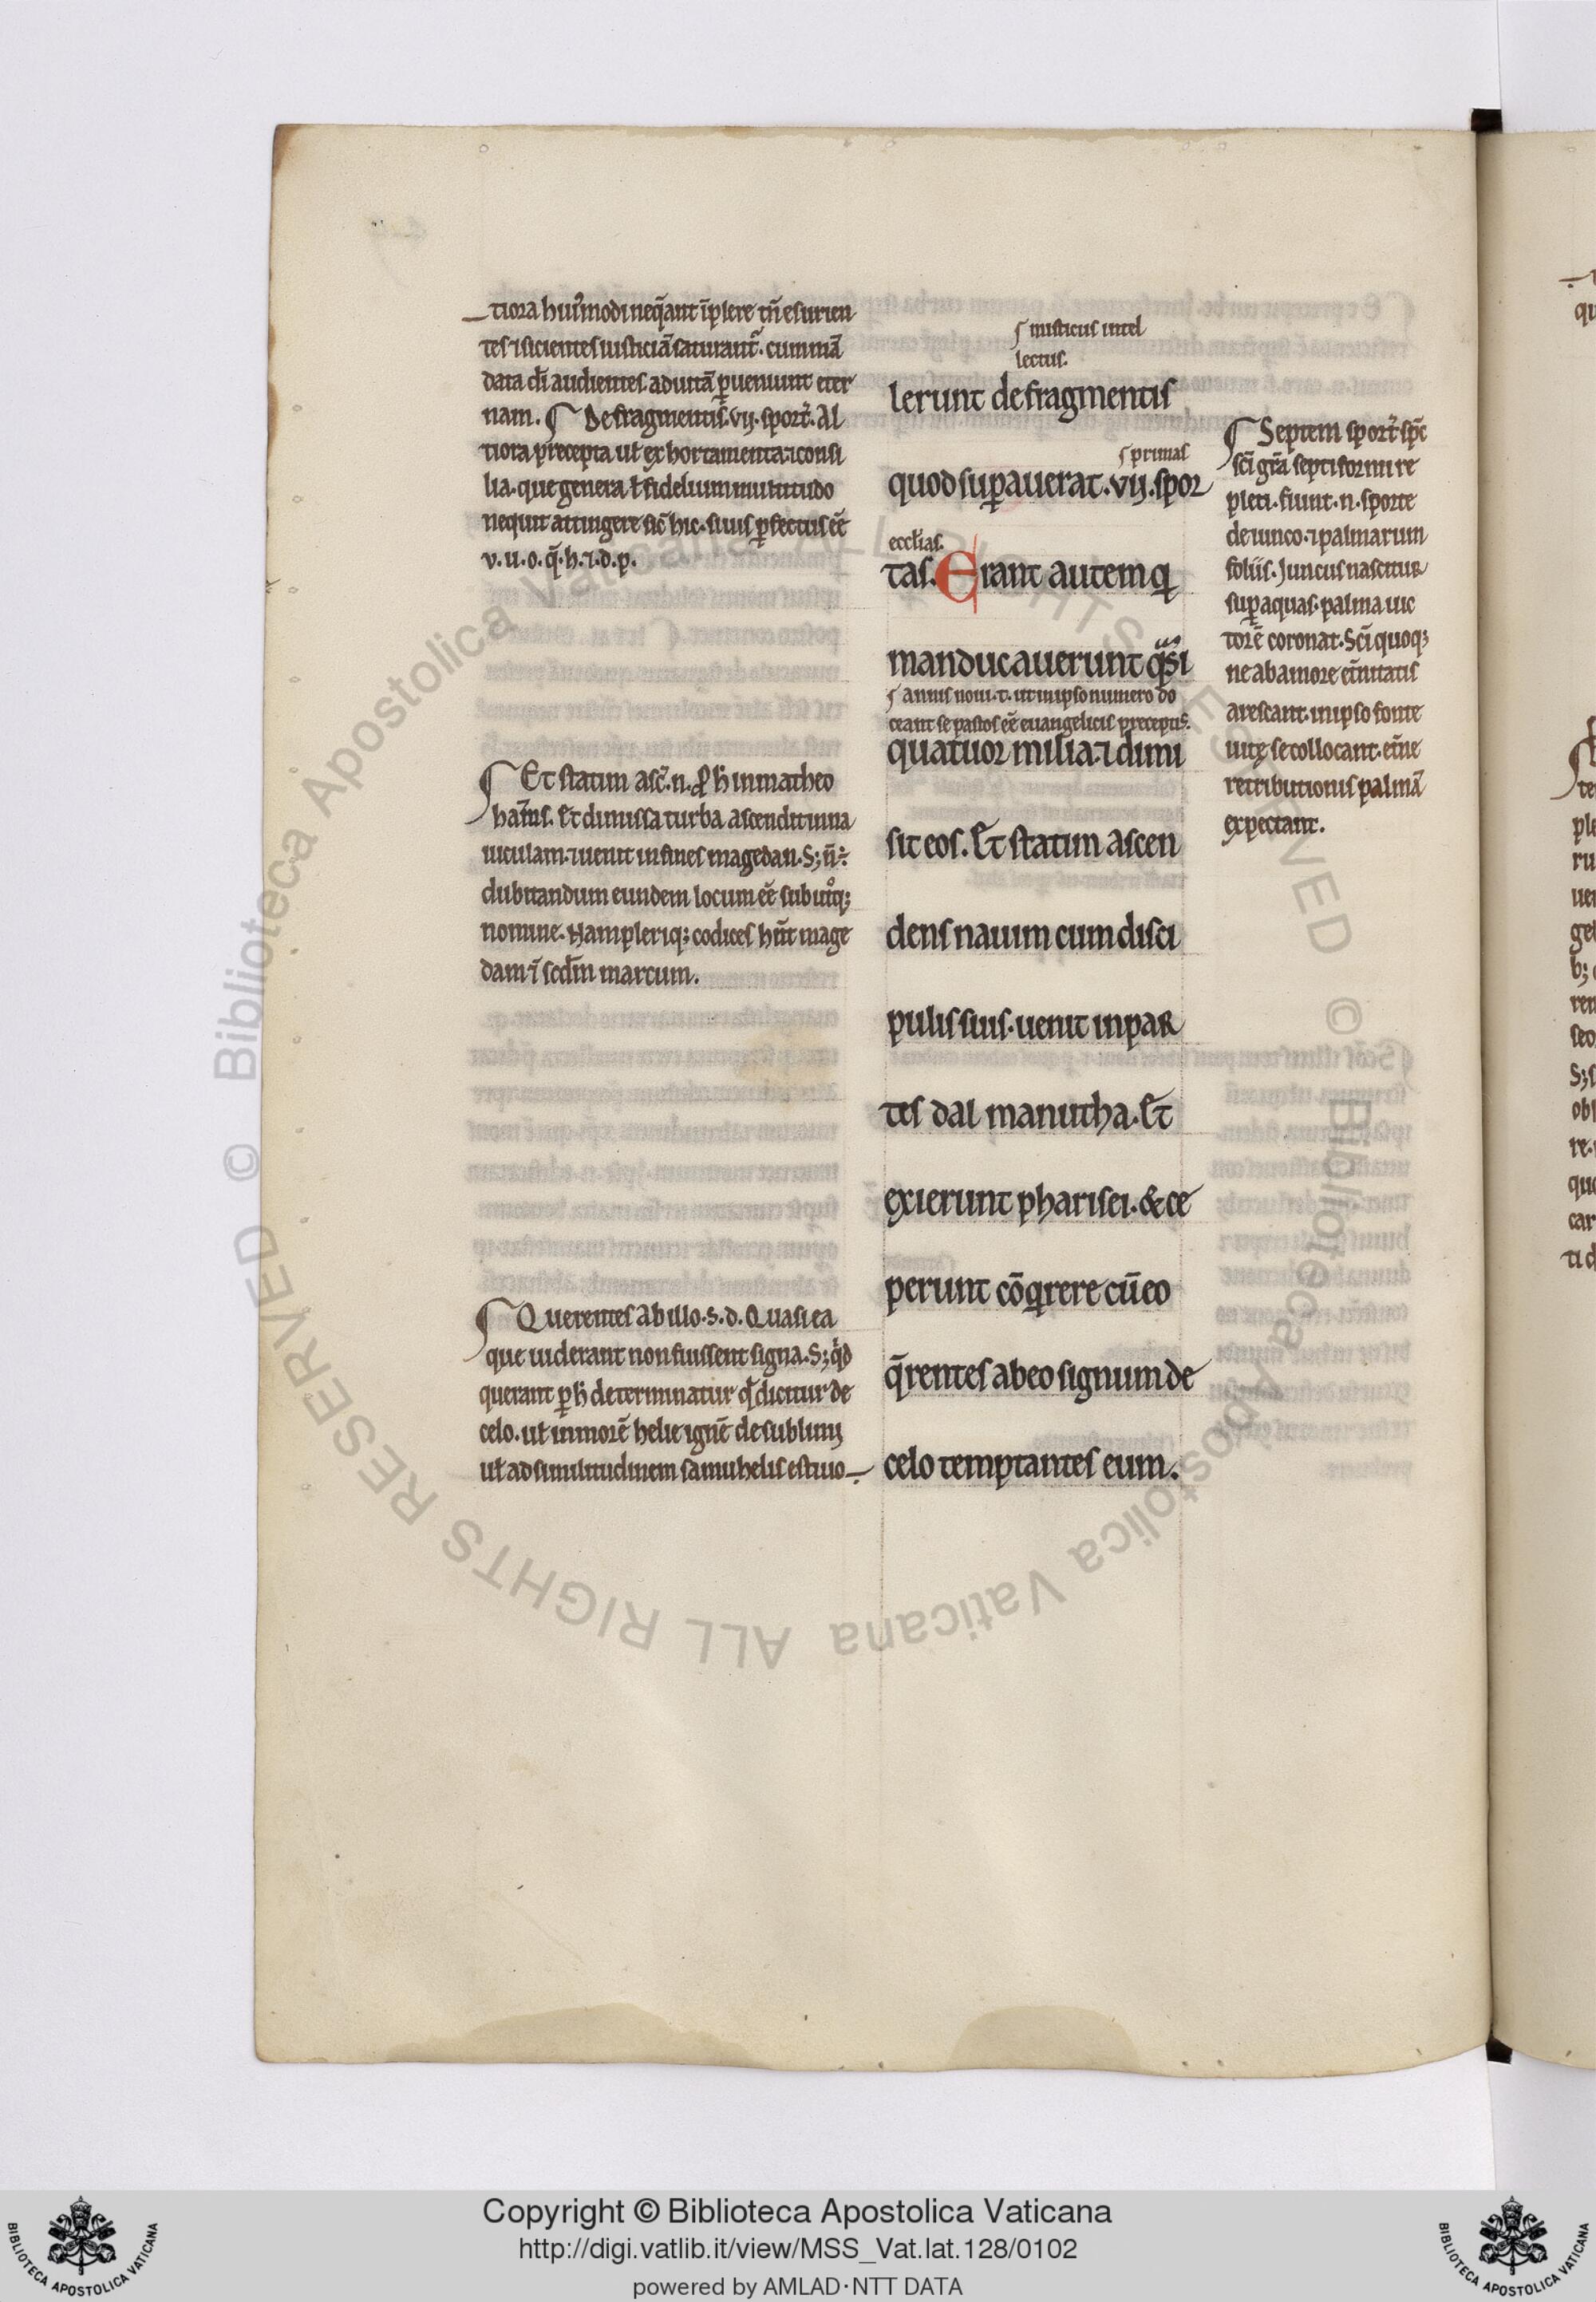 tiora hui᷒modi neq̄ant īplere tn̄ esurien
tes ⁊ sicientes iusticiā saturant᷑. cum mā
data dī audientes ad uitā ꝑueniunt eter
nam. De fragmentis. vij. sport᷑. Al
tiora precepta ut̄ exhortamenta ⁊ consi
lia. que genera ł fidelium multitudo
nequit attingere sic̄ hic. suis ꝑfectus eē
v. u. o. q̄. h. ⁊. d. p.
Et statim asc̄. n. ꝓ h̄ in matheo
hab̄ms. Et dimissa turba ascendit in na
uiculam. ⁊ uenit in fines magedan. Sꝫ n̄ ÷
dubitandum eundem locum eē sub utͦqꝫ
nomine. Nam pleriqꝫ codices hn̄t mage
dam ī scd̄m marcum.
Querentes ab illo. s. d. Quasi ea
que uiderant non fuissent signa. Sꝫ qͥd
querant ꝑ h̄ determinatur qd̄ dicitur de
celo. ut̄ in morē helie ignē de sublimi
ut̄ ad similitudinem samuhelis estiuo
misticus intel
lectus.
lerunt de fragmentis
primas
quod suꝑauerat. vij. spor
eccl̄ias.
tas. Erant autem q
manducauerunt qͣsi
annis noui. t. ut in ipso numero do
ceant se pastos eē euangelicis preceptis.
quatuor milia. ⁊ dimi
sit eos. Et statim ascen
dens nauim cum disci
pulis suis. uenit in par
tes dalmanutha. Et
exierunt pharisei. & ce
perunt cōqrere cū eo
q̄rentes ab eo signum de
celo temptantes eum.
Septem sport᷑. sp̄c
sc̄i gr̄a septiformi re
pleti. fiunt. n. sporte
de iunco. ⁊ palmarum
foliis. Juncus nascitur
suꝑ aquas. palma uic
torē coronat. Sc̄i quoqꝫ
ne ab amore et̄nitatis
arescant. in ipso fonte
uitę se collocant. et̄ne
retributionis palmā
expectant.
Copyright © Biblioteca Apostolica Vaticana
http://digi.vatlib.it/view/MSS_Vat.lat.128/0102
powered by AMLAD·NTT DATA
BIBLIOTECA APOSTOLICA VATICANA
BIBLIOTECA APOSTOLICA VATICANA
© Biblioteca Apostolica Vaticana ALL RIGHTS RESERVED © Biblioteca Apostolica Vaticana ALL RIGHTS RESERVED